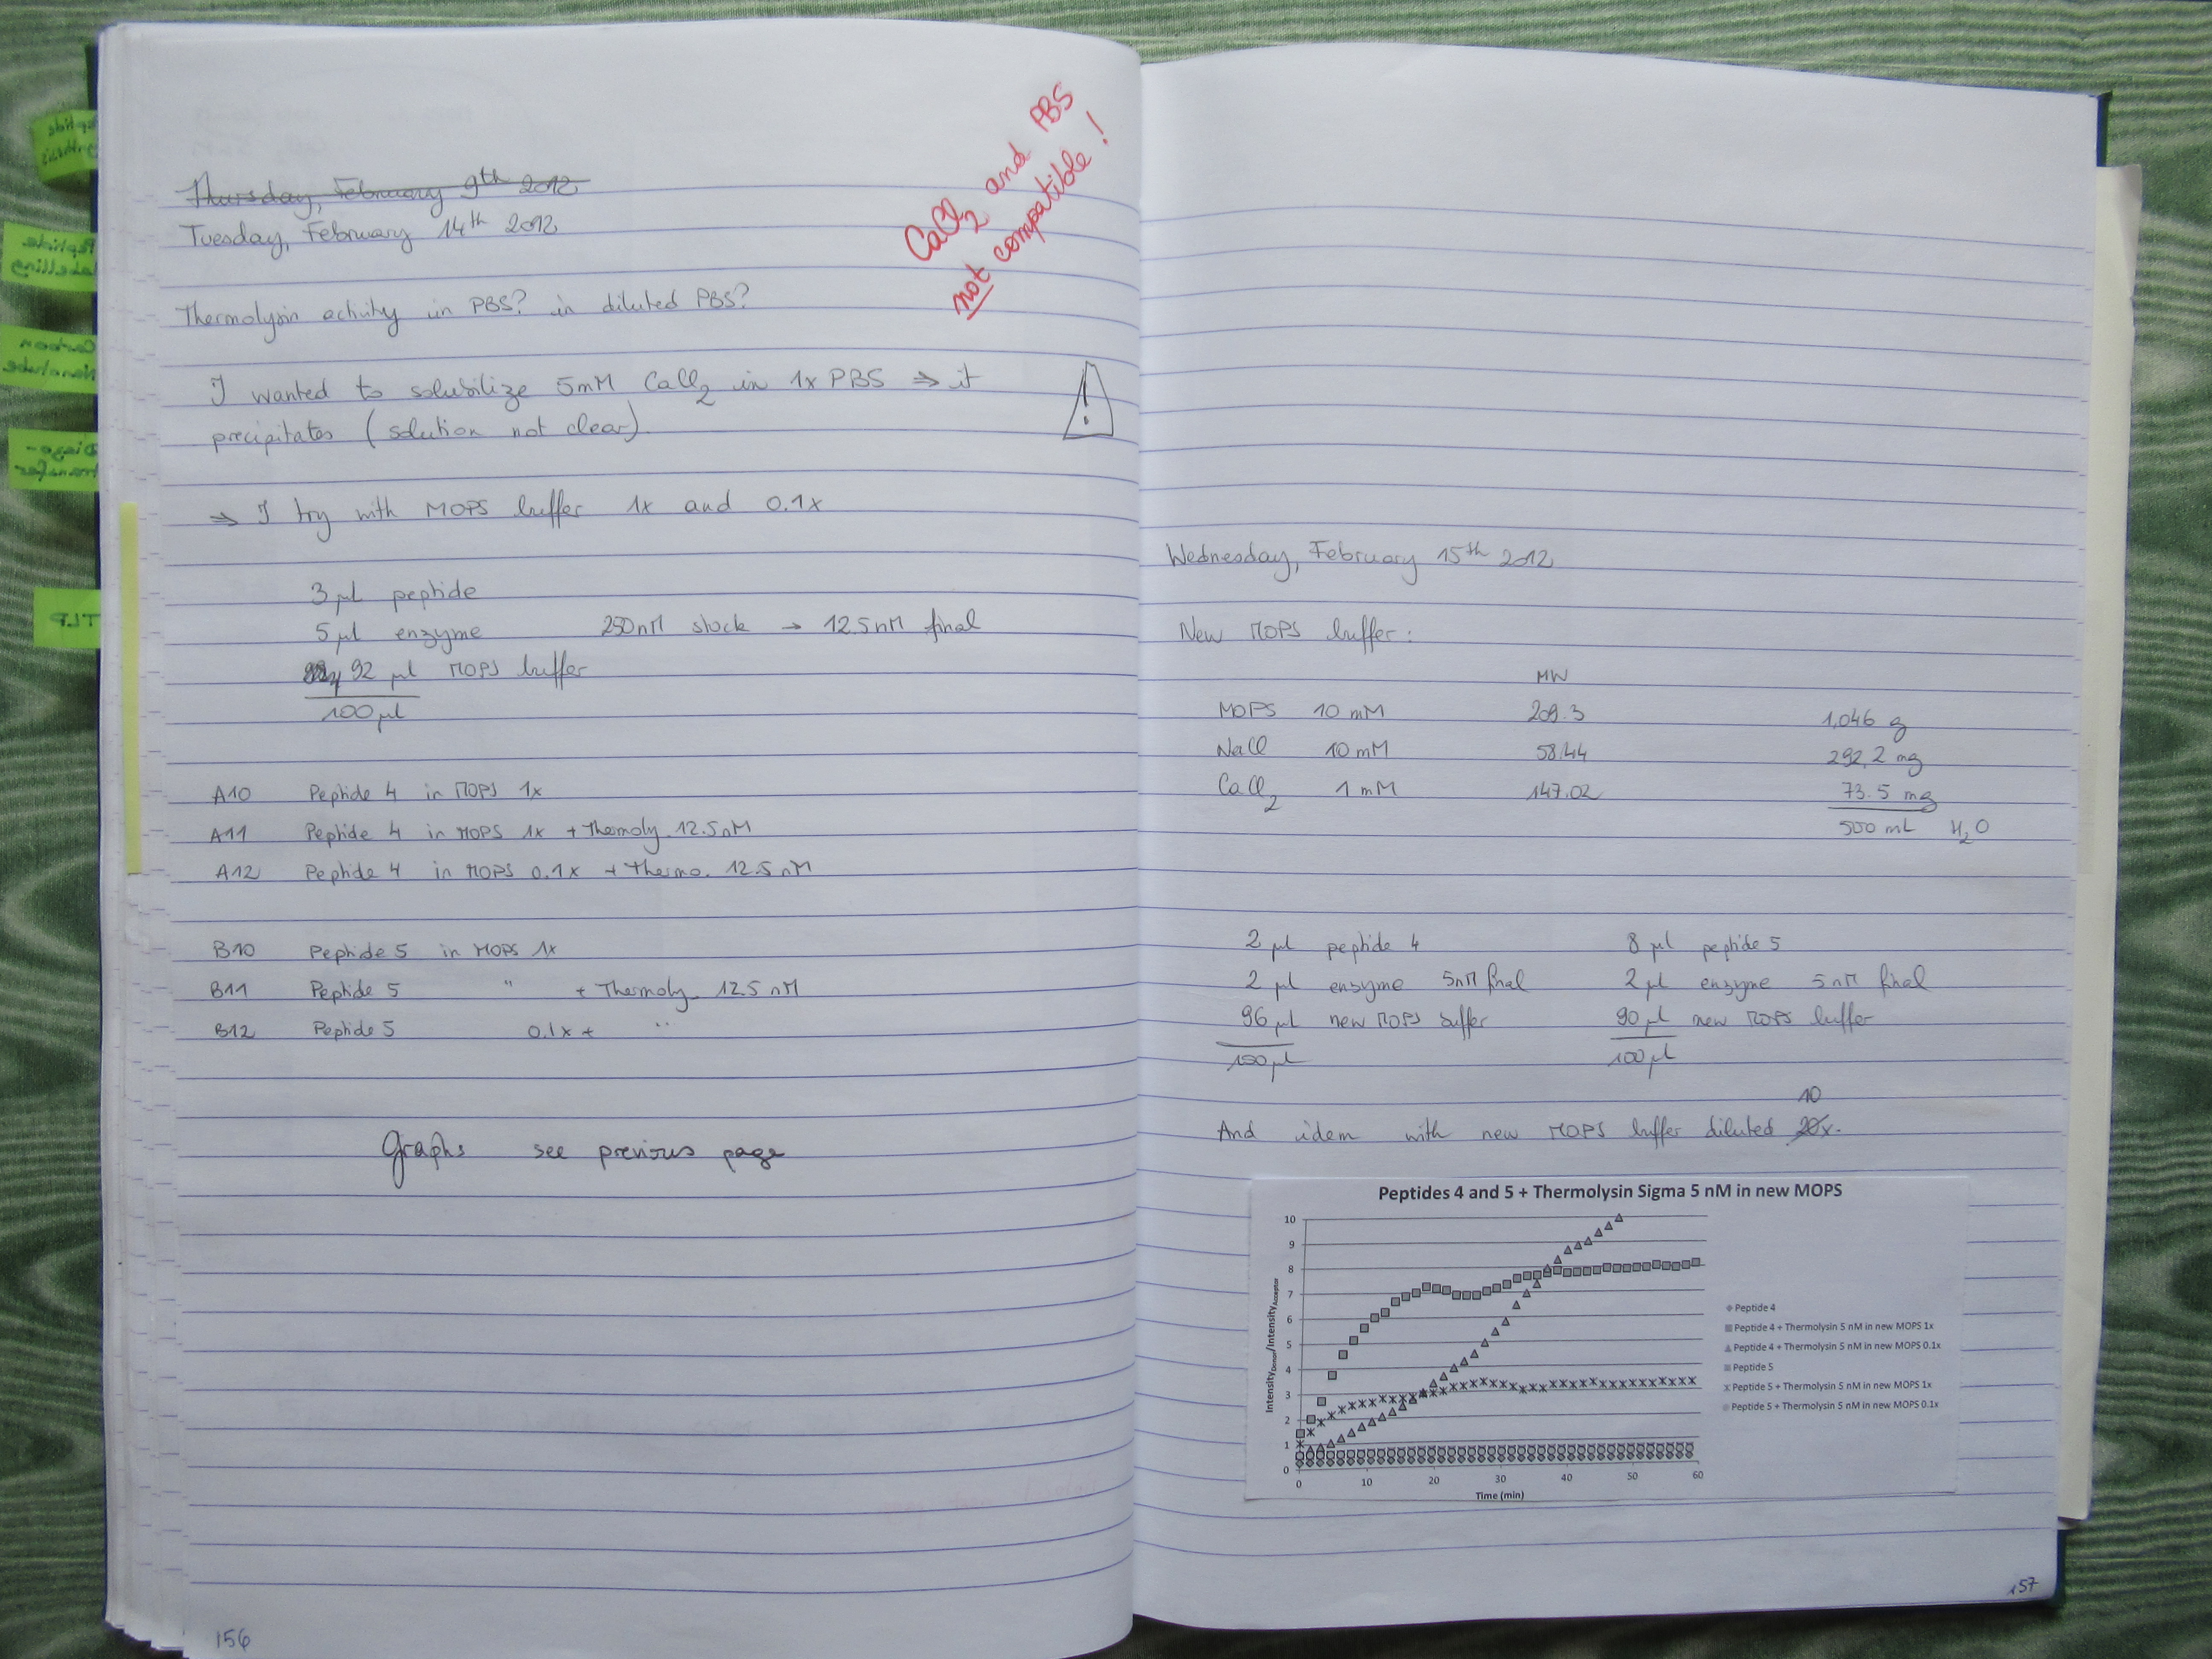 Peptide
synthesis
Peptide
labelling
Carbon
Nanotube
Diazo-
transfer
TLP
CaCl2 and PBS
not compatible!
Thursday, February 9th 2012
Tuesday, February 14th 2012
Thermolysin activity in PBS? in diluted PBS?
I wanted to solubilize 5mM CaCl2 in 1x PBS ⇒ it
precipitates (solution not clear).
!
⇒ I try with MOPS buffer 1x and 0.1x
3 µl peptide
5 µl enzyme 250nM stock → 12.5nM final
92 µl MOPS buffer
100 µl
A10 Peptide 4 in MOPS 1x
A11 Peptide 4 in MOPS 1x + Thermoly. 12.5nM
A12 Peptide 4 in MOPS 0.1x + Thermo. 12.5nM
B10 Peptide 5 in MOPS 1x
B11 Peptide 5 " + Thermoly. 12.5nM
B12 Peptide 5 0.1x + "
Graphs see previous page
156
Wednesday, February 15th 2012
New MOPS buffer:
MW
MOPS 10 mM 209.3 1,046 g
NaCl 10 mM 58.44 292,2 mg
CaCl2 1 mM 147.02 73.5 mg
500 mL H2O
2 µl peptide 4 8 µl peptide 5
2 µl enzyme 5nM final 2 µl enzyme 5nM final
96 µl new MOPS buffer 90 µl new MOPS buffer
100 µl 100 µl
10
And idem with new MOPS buffer diluted 20x.
Peptides 4 and 5 + Thermolysin Sigma 5 nM in new MOPS
10
9
8
7
6
5
4
3
2
1
0
Intensity Donor/Intensity Acceptor
0 10 20 30 40 50 60
Time (min)
Peptide 4
Peptide 4 + Thermolysin 5 nM in new MOPS 1x
Peptide 4 + Thermolysin 5 nM in new MOPS 0.1x
Peptide 5
Peptide 5 + Thermolysin 5 nM in new MOPS 1x
Peptide 5 + Thermolysin 5 nM in new MOPS 0.1x
157